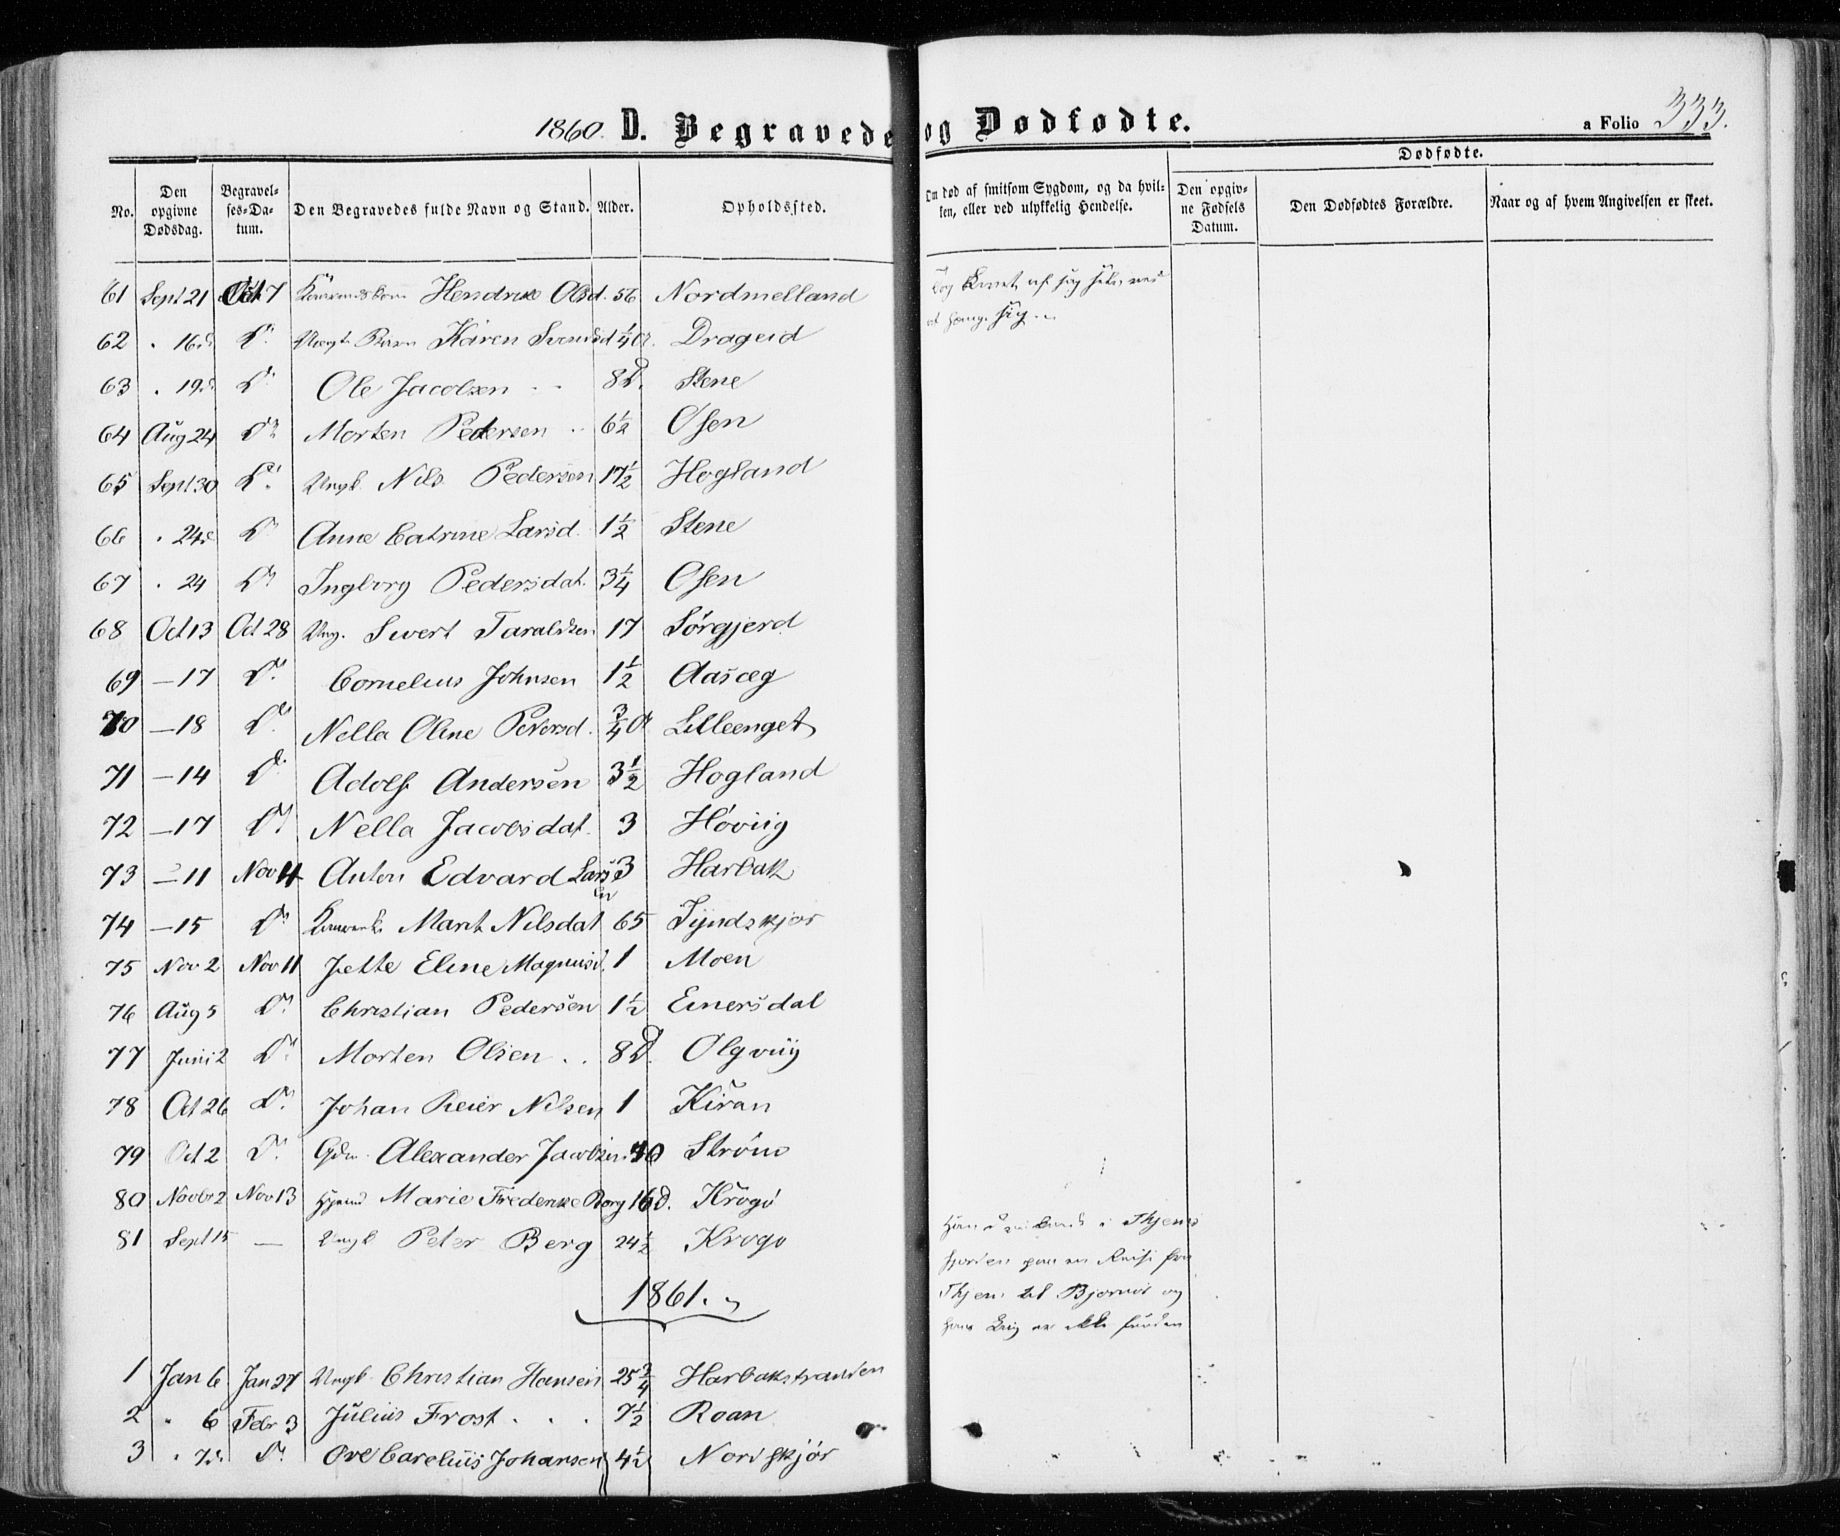 1860. D. Begravede og Dødfødte. a Folio 333.
Dødfødte.
No. Den opgivne Dødsdag. Begravelses-Datum. Den Begravedes fulde Navn og Stand. Alder. Opholdssted. Om død af smitsom Sygdom, og da hvilken, eller ved ulykkelig Hendelse. Den opgivne Fødsels Datum. Den Dødfødtes Forældre. Naar og af hvem Angivelsen er skeet.
61 Sept 21 Oct 7 Hendrik Olsd. 56 Nordmelland
at hænge sig
62 . 16d D. Barn Karen Svendsd 1/4 a. Drageid
63 . 19d D. Ole Jacobsen 8 D. Stene
64 Aug 24 D. Morten Pedersen 6 1/2 Osen
65 Sept 30 D. Ungk. Nils Pedersen 17 1/2 Hogland
66 . 24d D. Anne Catrine Larsd. 1 1/2 Stene
67 . 24 D. Ingborg Pedersdat. 3 1/4 Osen
68 Oct 13 Oct 28 Ung. Sivert Taraldsen 17 Sörgjerd
69 — 17 D. Cornelius Johnsen 1 1/2 Aasæg
70 — 18 D. Nella Oline Petersd. 3/4 a Lilleenget
71 — 14 D. Adolf Andersen 3 1/2 Hogland
72 — 17 D. Nella Jacobsdat. 3 Høviig
73 — 11 Nov 11 Anton Edvard Larsen 3 Harbak
74 — 15 D. Marit Nilsdat 65 Tyndskjær
75 Nov 2 Nov 11 Jette Eline Magnusd. 1 Moen
76 Aug 5 D. Christian Pedersen 1 1/2 Einersdal
77 Juni 2 D. Morten Olsen . . 8 D. Olgviig
78 Oct 26 D. Johan Peier Nilsen 1 Kiran
79 Oct 2 D. Gdm. Alexander Jacobsen 40 Strøm
80 Novbr 2 Nov 13 Marie Frederikke Berg 16 d. Krogø
81 Sept 15 — Ungk Peter Berg 24 1/2 Krogø
fjorden paa en Reise fra
til Bjørnør og
hans Liig er ikke funden
1861.
1 Jan 6 Jan 27 Ungk. Christian Hansen 25 3/4 Harbakstranden
2 . 6 Febr 3 Julius Frost . . . 7 1/2 Roan
3 . 7d. D. Ove Carelius Johansen 4 1/2 Nordskjør